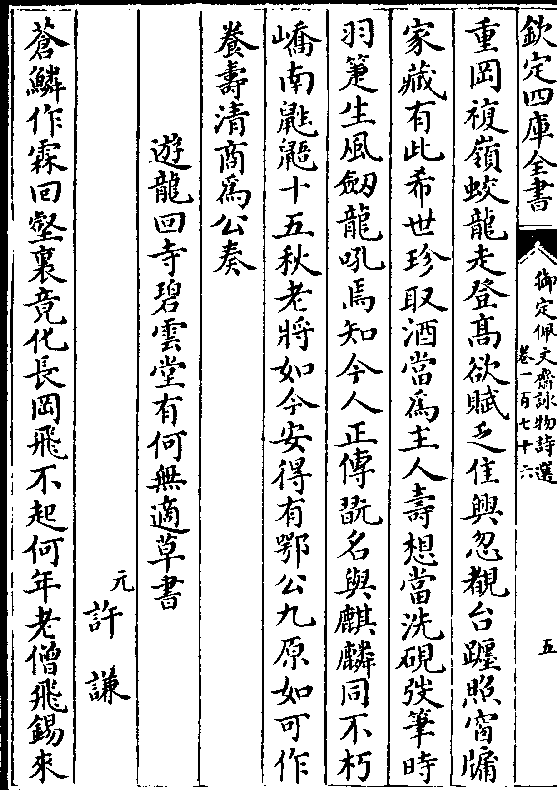 欽定四庫全書
御定佩文齋詠物詩選
卷一百七十六
五
重岡複嶺蛟龍走登髙欲賦乏佳興忽覩台躔照窗牖
家藏有此希世珍取酒當為主人壽想當洗硯弢筆時
羽箑生風劒龍吼焉知今人正傳翫名與麒麟同不朽
嶠南鼪鼯十五秋老將如今安得有鄂公九原如可作
養壽清商為公奏
遊龍回寺碧雲堂有何無適草書
元許謙
蒼鱗作霖回壑裏竟化長岡飛不起何年老僧飛錫來